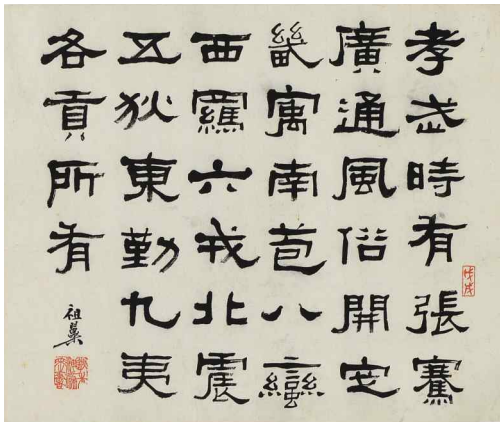 孝武時有張騫
廣通風俗開定
畿寓南苞八蠻
西羈六戎北震
五狄東勤九夷
各貢所有
祖
戊戌